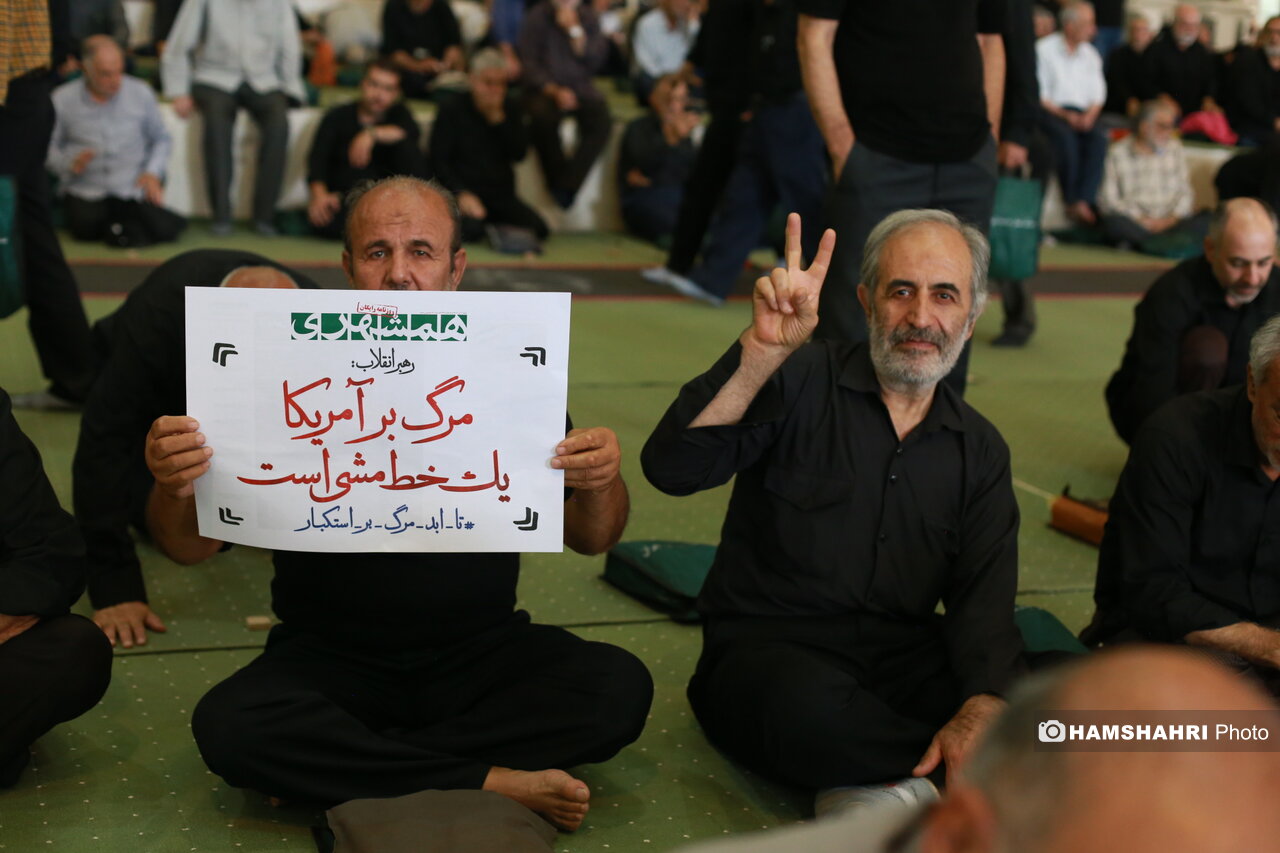 روزنامه رایگان
همشهری
رهبر انقلاب:
مرگ بر آمریکا
یک خط مشی است
#تا_ابد_مرگ_بر_استکبار
HAMSHAHRI Photo